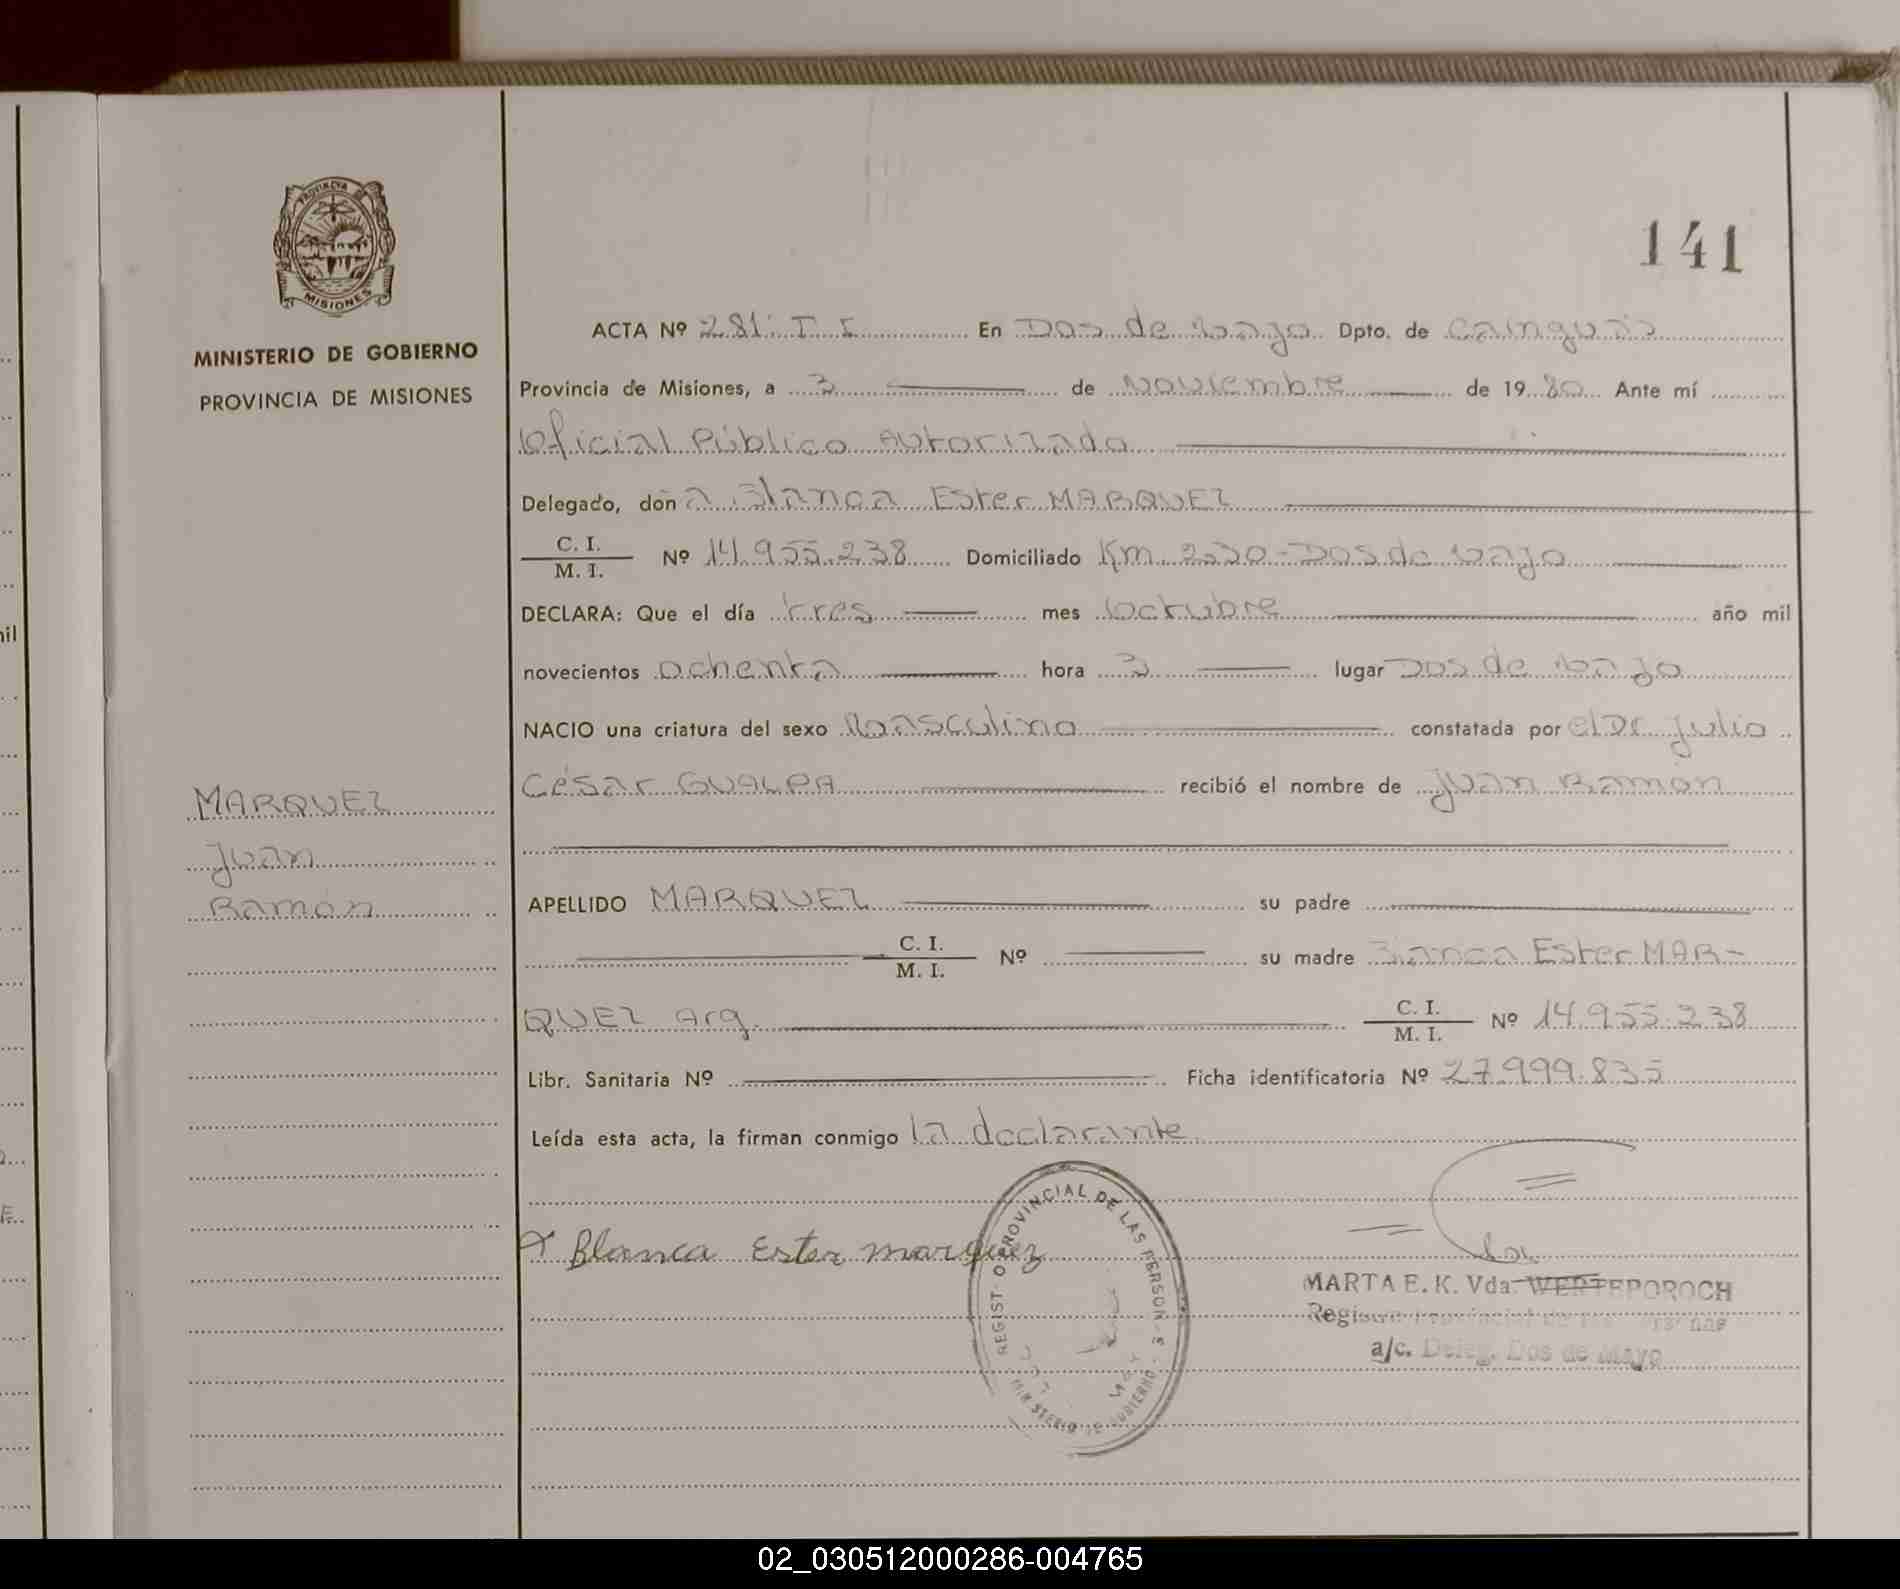 141
PROVINCIA DE
MISIONES
MINISTERIO DE GOBIERNO
PROVINCIA DE MISIONES
ACTA Nº 281. T I En Dos de Mayo Dpto. de Cainguás
Provincia de Misiones, a 3 de Noviembre de 1980 Ante mí
Oficial Público Autorizado
Delegado, doña Blanca Ester MARQUEZ
C. I.
M. I. Nº 14.955.238 Domiciliado Km. 230-Dos de Mayo
DECLARA: Que el día tres mes Octubre año mil
novecientos ochenta hora 3 lugar Dos de Mayo
NACIO una criatura del sexo Masculino constatada por el Dr Julio
César GUALPA recibió el nombre de Juan Ramón
MARQUEZ
Juan
Ramón
APELLIDO MARQUEZ su padre
C. I.
M. I. Nº su madre Blanca Ester MAR-
QUEZ Arg. C. I.
M. I. Nº 14.955.238
Libr. Sanitaria Nº Ficha identificatoria Nº 27.999.835
Leída esta acta, la firman conmigo la declarante
Blanca Ester marquez
REGIST O PROVINCIAL DE LAS PERSON S
MIN STERIO DE GOBIERNO
MARTA E. K. Vda. WERTEPOROCH
Registro Provincial de las Personas
a/c. Deleg. Dos de Mayo
mil
02_030512000286-004765